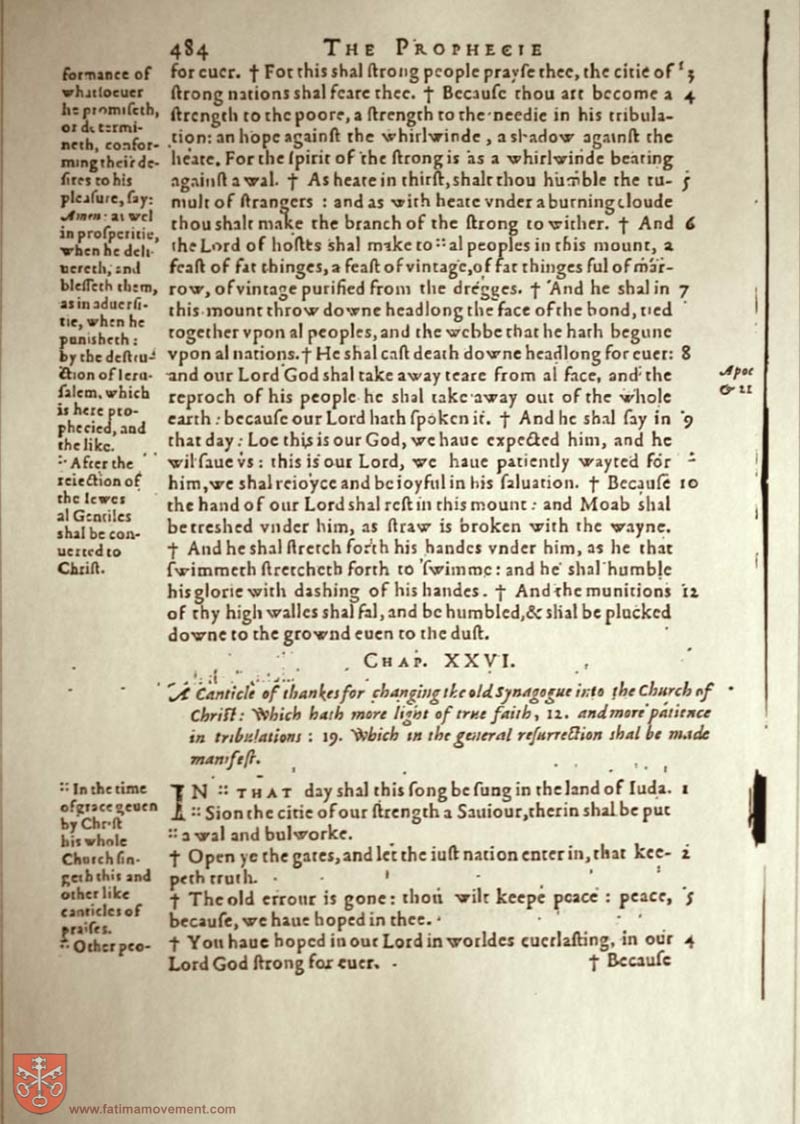 484 THE PROPHECIE
formance of
whatsoeuer
he promiseth,
or determi-
neth, confor-
ming their de-
sires to his
pleasure, say:
Amen: as wel
in prosperitie,
when he deli-
uereth, and
blesseth them,
as in aduersi-
tie, when he
punisheth:
by the destru-
ction of Ieru-
salem, which
is here pro-
phecied, and
the like.
:: After the
reiection of
the Iewes
al Gentiles
shal be con-
uerted to
Christ.
for euer. † For this shal strong people prayse thee, the citie of 3
strong nations shal feare thee. † Because thou art become a 4
strength to the poore, a strength to the needie in his tribula-
tion: an hope against the whirlwinde, a shadow against the
heate. For the spirit of the strong is as a whirlwinde beating
against a wal. † As heate in thirst, shalt thou humble the tu- 5
mult of strangers : and as with heate vnder a burning cloude
thou shalt make the branch of the strong to wither. † And 6
the Lord of hostes shal make to :: al peoples in this mount, a
feast of fat thinges, a feast of vintage, of fat thinges ful of mar-
row, of vintage purified from the dregges. † And he shal in 7
this mount throw downe headlong the face of the bond, tied
together vpon al peoples, and the webbe that he hath begune
vpon al nations. † He shal cast death downe headlong for euer: 8
and our Lord God shal take away teare from al face, and the
reproch of his people he shal take away out of the whole
earth: because our Lord hath spoken it. † And he shal say in 9
that day: Loe this is our God, we haue expected him, and he
wil saue vs: this is our Lord, we haue patiently wayted for
him, we shal reioyce and be ioyful in his saluation. † Because 10
the hand of our Lord shal rest in this mount: and Moab shal
be treshed vnder him, as straw is broken with the wayne.
† And he shal stretch forth his handes vnder him, as he that
swimmeth stretcheth forth to swimme: and he shal humble
his glorie with dashing of his handes. † And the munitions 12
of thy high walles shal fal, and be humbled, & shal be plucked
downe to the grownd euen to the dust.
Apoc
& 21
CHAP. XXVI.
A Canticle of thankes for changing the old Synagogue into the Church of
Christ: Which hath more light of true faith, 12. and more patience
in tribulations: 19. Which in the general resurrection shal be made
manifest.
:: In the time
of grace geuen
by Christ
his whole
Church sin-
geth this and
other like
canticles of
praises.
:: Other peo-
IN :: THAT day shal this song be sung in the land of Iuda. 1
:: Sion the citie of our strength a Sauiour, therin shal be put
:: a wal and bulworke.
† Open ye the gates, and let the iust nation enter in, that kee- 2
peth truth.
† The old errour is gone: thou wilt keepe peace: peace, 3
because, we haue hoped in thee.
† You haue hoped in our Lord in worldes euerlasting, in our 4
Lord God strong for euer. † Because
www.fatimamovement.com